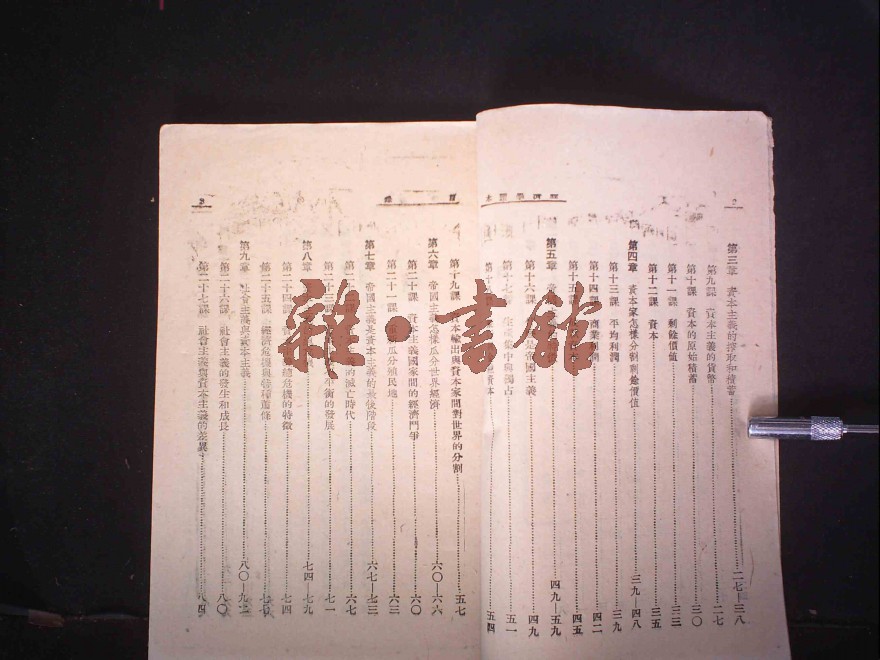 經濟學課本
第三章 資本主義的搾取和積蓄 二七—三八
第九課 資本主義的貨幣 二七
第十課 資本的原始積蓄 三〇
第十一課 剩餘價值 三三
第十二課 資本 三五
第四章 資本家怎樣分割剩餘價值 三九—四八
第十三課 平均利潤 三九
第十四課 商業利潤 四二
第十五課 四五
第五章 四九—五九
第十六課 是帝國主義 四九
第十七課 集中與獨占 五一
資本 五四
目
第十九課 本輸出與資本家間對世界的分割 五七
第六章 帝國主義怎樣瓜分世界經濟 六〇—六六
第二十課 資本主義國家間的經濟鬥爭 六〇
第二十一課 瓜分殖民地 六三
第七章 帝國主義是資本主義的最後階段 六七—七三
的滅亡時代 六七
第二十三課 平衡的發展 七一
第八章 七四—七九
第二十四課 總危機的特徵 七四
第二十五課 經濟危機與特種蕭條
第九章 社會主義與資本主義 八〇—九二
第二十六課 社會主義的發生和成長 八〇
第二十七課 社會主義與資本主義的差異 八四
雜·書館